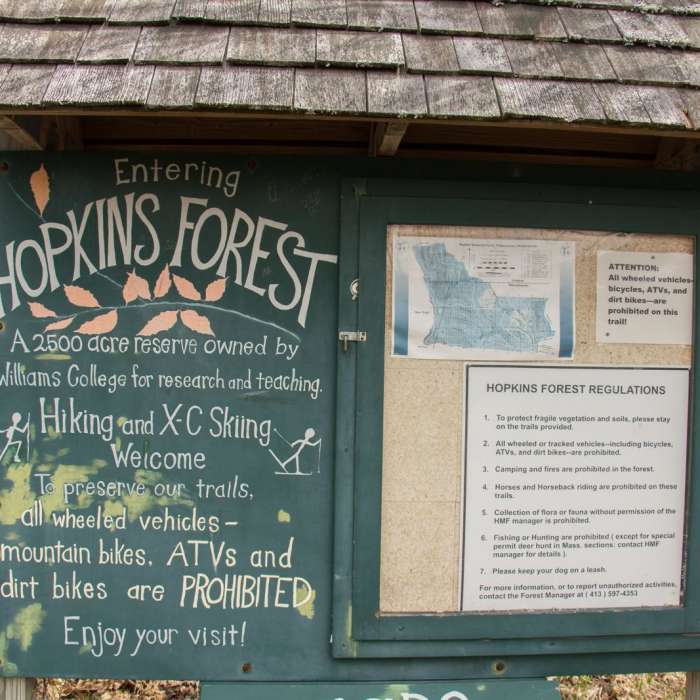 Entering
HOPKINS FOREST
A 2500 acre reserve owned by
Williams College for research and teaching.
Hiking and X-C Skiing
Welcome
To preserve our trails,
all wheeled vehicles –
mountain bikes, ATVs and
dirt bikes are PROHIBITED
Enjoy your visit!
ATTENTION:
All wheeled vehicles-
bicycles, ATVs, and
dirt bikes---are
prohibited on this
trail!
HOPKINS FOREST REGULATIONS
1. To protect fragile vegetation and soils, please stay
on the trails provided.
2. All wheeled or tracked vehicles--including bicycles,
ATVs, and dirt bikes--are prohibited.
3. Camping and fires are prohibited in the forest.
4. Horses and Horseback riding are prohibited on these
trails.
5. Collection of flora or fauna without permission of the
HMF manager is prohibited.
6. Fishing or Hunting are prohibited ( except for special
permit deer hunt in Mass. sections: contact HMF
manager for details ).
7. Please keep your dog on a leash.
For more information, or to report unauthorized activities,
contact the Forest Manager at ( 413 ) 597-4353